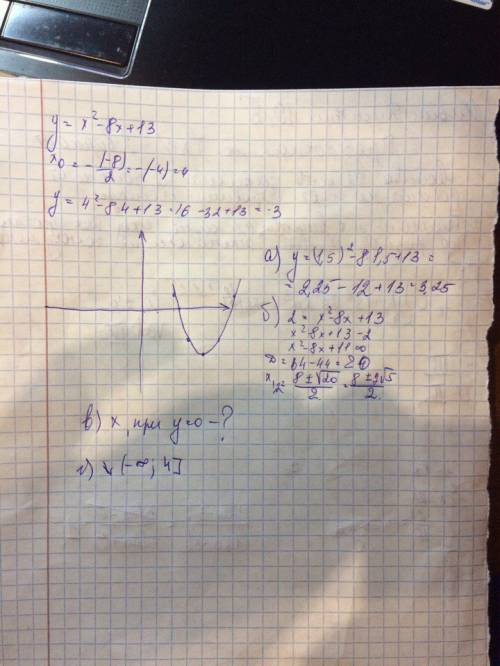 y = x² - 8x + 13
x₀ = - (-8)/2 = -(-4) = 4
y = 4² - 8·4 + 13 = 16 - 32 + 13 = -3
а) y = (1,5)² - 8·1,5 + 13 =
= 2,25 - 12 + 13 = 3,25
б) 2 = x² - 8x + 13
x² - 8x + 13 - 2
x² - 8x + 11 = 0
D = 64 - 44 = 20
x₁,₂ = (8 ± √20)/2 = (8 ± 2√5)/2
в) x, при y=0 - ?
г) ↘ (-∞; 4]